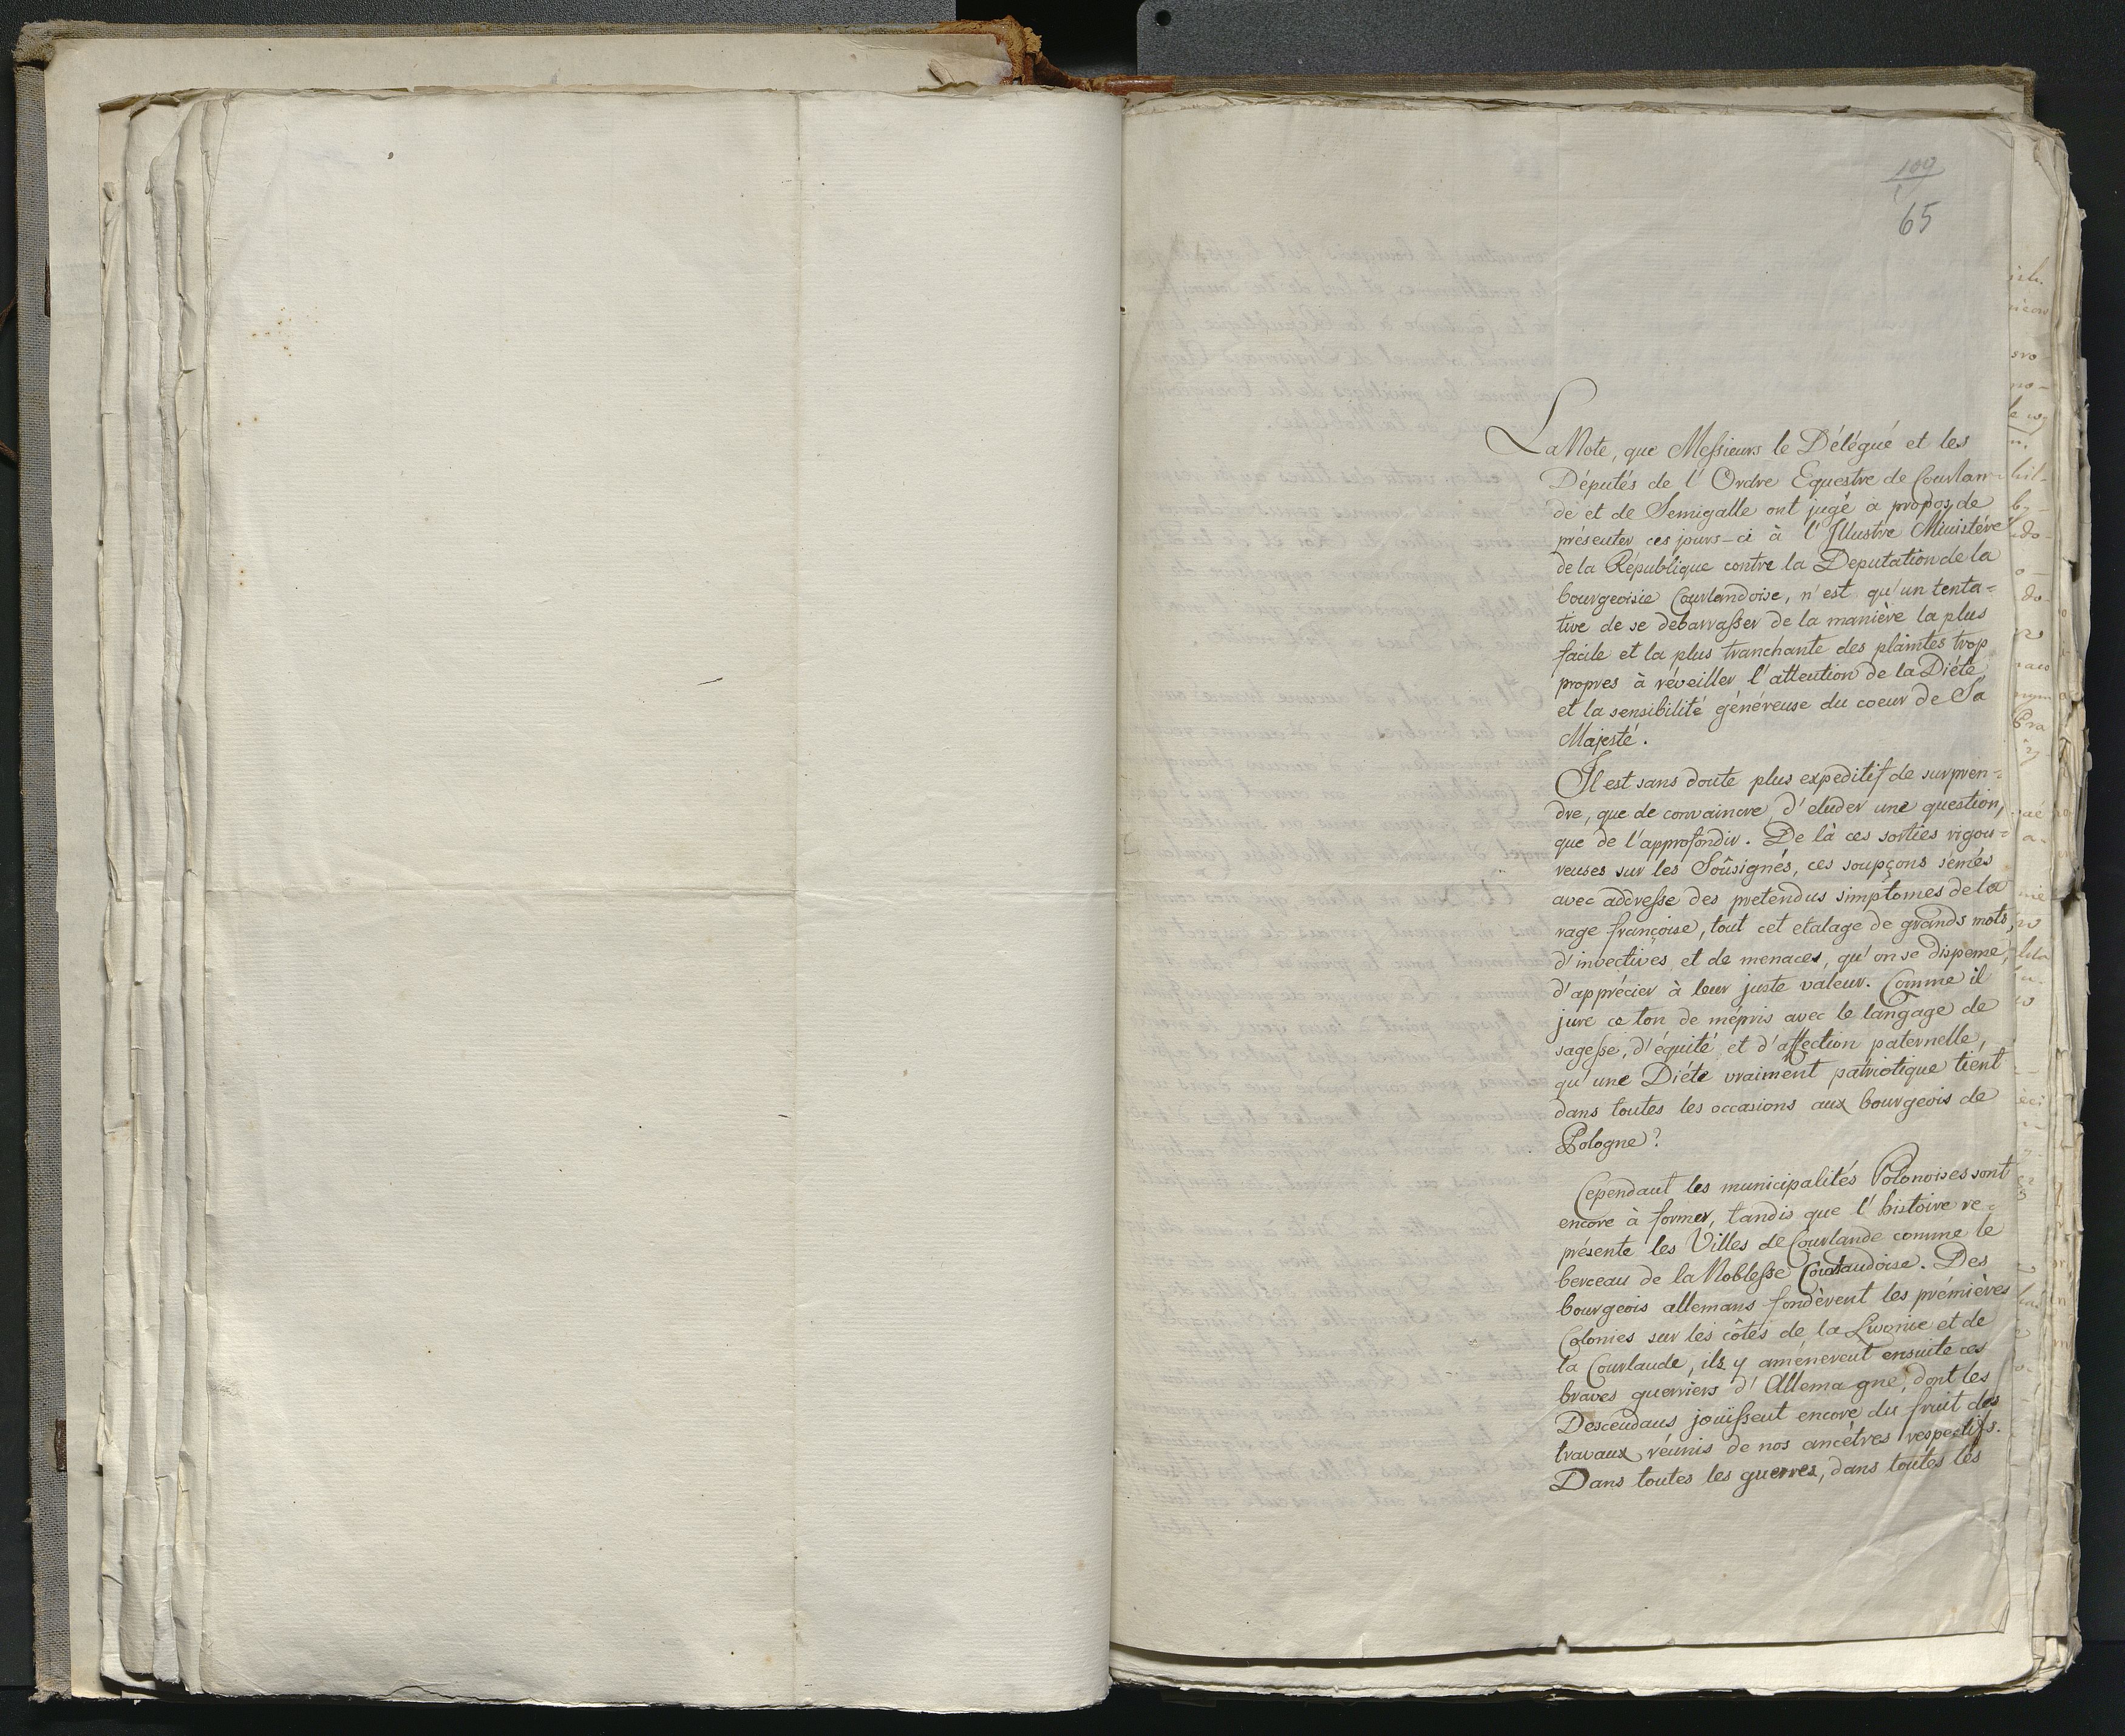 109
65
La Note, que Messieurs le Délégué et les
Députés de l'Ordre Equestre de Courlan-
de et de Semigalle ont jugé à propos, de
présenter ces jours-ci à l'Illustre Ministère
de la République contre la Deputation de la
bourgeoisie Courlandoise, n'est qu'un tenta=
tive de se debarrasser de la manière la plus
facile et la plus tranchante des plaintes trop
propres à réveiller l'attention de la Diéte
et la sensibilité généreuse du coeur de Sa
Majesté.
Il est sans doute plus expeditif de surpren=
dre, que de convaincre, d'eluder une question,
que de l'approfondir. De là ces sorties rigou=
reuses sur les Soûsignés, ces soupçons semés
avec addresse des pretendus simptomes de la
rage françoise, tout cet etalage de grands mots,
d'invectives et de menaces, qu'on se dispense,
d'apprécier à leur juste valeur. Comme il
jure ce ton de mépris avec le langage de
sagesse, d'équité et d'affection paternelle,
qu'une Diéte vraiment patriotique tient
dans toutes les occasions aux bourgeois de
Pologne?
Cependant les municipalités Polonoises sont
encore à former, tandis que l'histoire re=
présente les Villes de Courlande comme le
berceau de la Noblesse Courlandoise. Des
bourgeois allemans fondèrent les prémières
Colonies sur les côtés de la Livonie et de
la Courlande, ils y amenerent ensuite ces
braves guerriers d'Allemagne, dont les
Descendans jouissent encore du fruit des
travaux réunis de nos ancêtres respectifs.
Dans toutes les guerres, dans toutes les